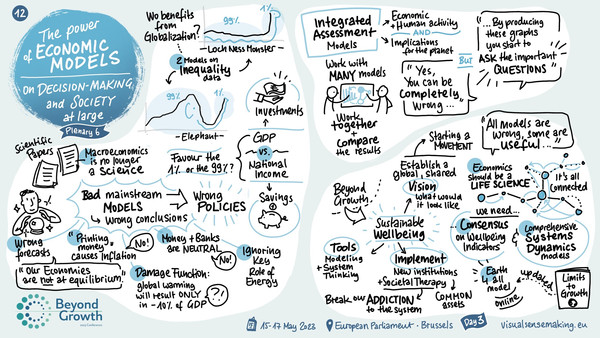 12
The power
of ECONOMIC
MODELS
on DECISION-MAKING,
and SOCIETY
at large
Plenary 6
Who benefits
from
Globalization?
99%
1%
- Loch Ness Monster -
2 Models on
Inequality
data
99%
1%
- Elephant -
Favour the
1% or the 99%?
Investments
+
GDP
vs.
National
Income
Savings
Scientific
Papers
Macroeconomics
is no longer
a Science
Bad mainstream
MODELS
↳ wrong conclusions
Wrong
POLICIES
Wrong
forecasts
"Printing
money
causes inflation"
No!
Money + Banks
are NEUTRAL
No!
Ignoring
Key
Role of
Energy
"Our Economies
are not at equilibrium."
Damage Function:
global warming
will result ONLY
in -10% of GDP
?!
Integrated
Assessment
Models
Economic
+ Human activity
AND
Implications
for the planet
But
"...By producing
these graphs
you start to
ASK the important
QUESTIONS"
Work with
MANY models
"Yes,
You can be
Completely
Wrong..."
Work
together
+
Compare
the results
Starting a
MOVEMENT
"All models are
wrong, some are
useful..."
Establish a
global, shared
Vision
what would
it look like
Beyond
Growth
Sustainable
Wellbeing
Tools
Modelling
+ System
Thinking
Implement
New institutions
+ Societal Therapy
Break our ADDICTION
to the system
COMMON
assets
Economics
should be a
LIFE SCIENCE
It's all
Connected
we need...
Consensus
on Wellbeing
Indicators
Comprehensive
Systems
Dynamics
models
Earth
4 all
model
online
updated
Limits
to
Growth
Beyond
Growth
15-17 May 2023
European Parliament · Brussels
Day 3
visualsensemaking.eu